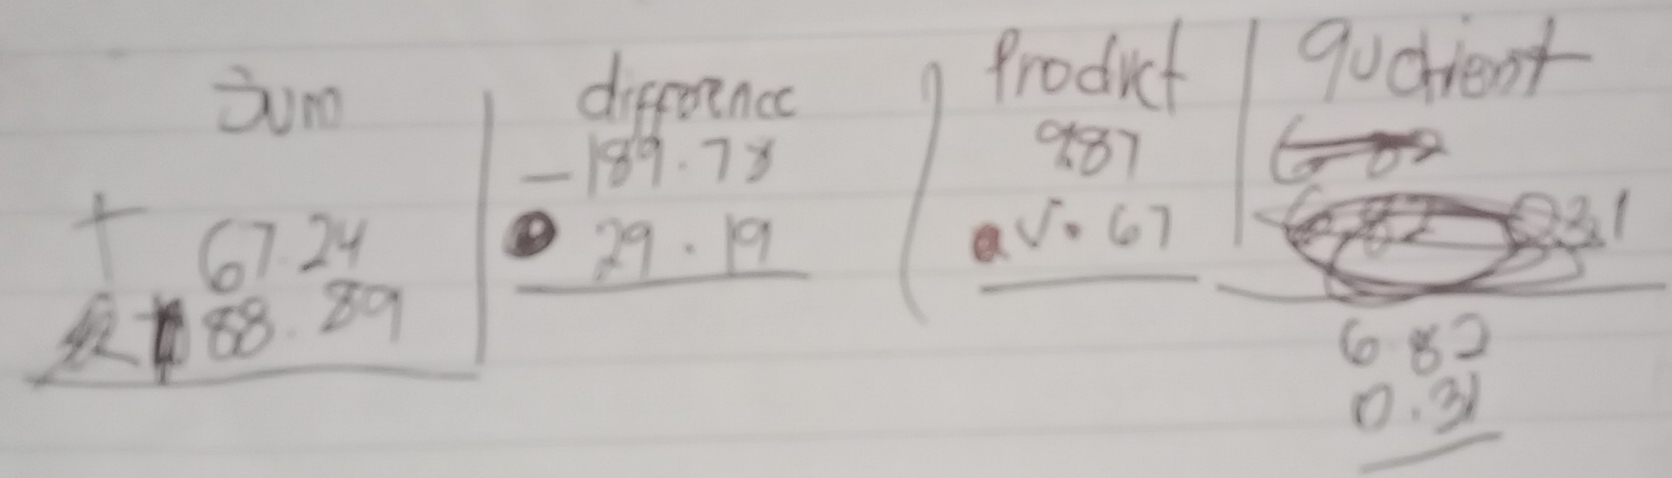 Sum
+ 67.24
88.89
difference
- 189.78
29.19
Product
9.87
.67
qudtient
0.31
6.82
0.31